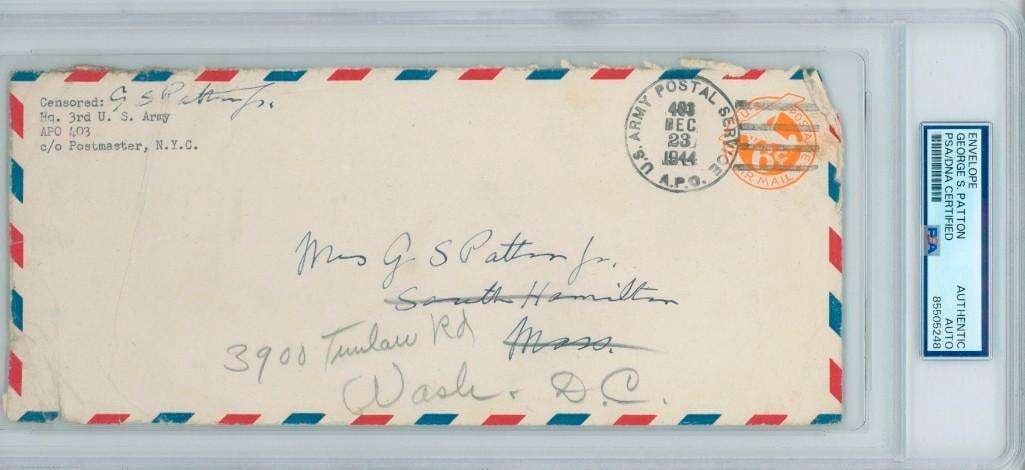 Censored: G S Patton Jr.
Hq. 3rd U. S. Army
APO 403
c/o Postmaster, N.Y.C.
U.S. ARMY POSTAL SERVICE
403
DEC
23
1944
A.P.O.
6¢
AIR MAIL
Mrs G S Patton Jr.
South Hamilton
Mass.
3900 Tunlaw Rd
Wash. D.C.
ENVELOPE
GEORGE S. PATTON
PSA/DNA CERTIFIED
PSA
AUTHENTIC
AUTO
85505248